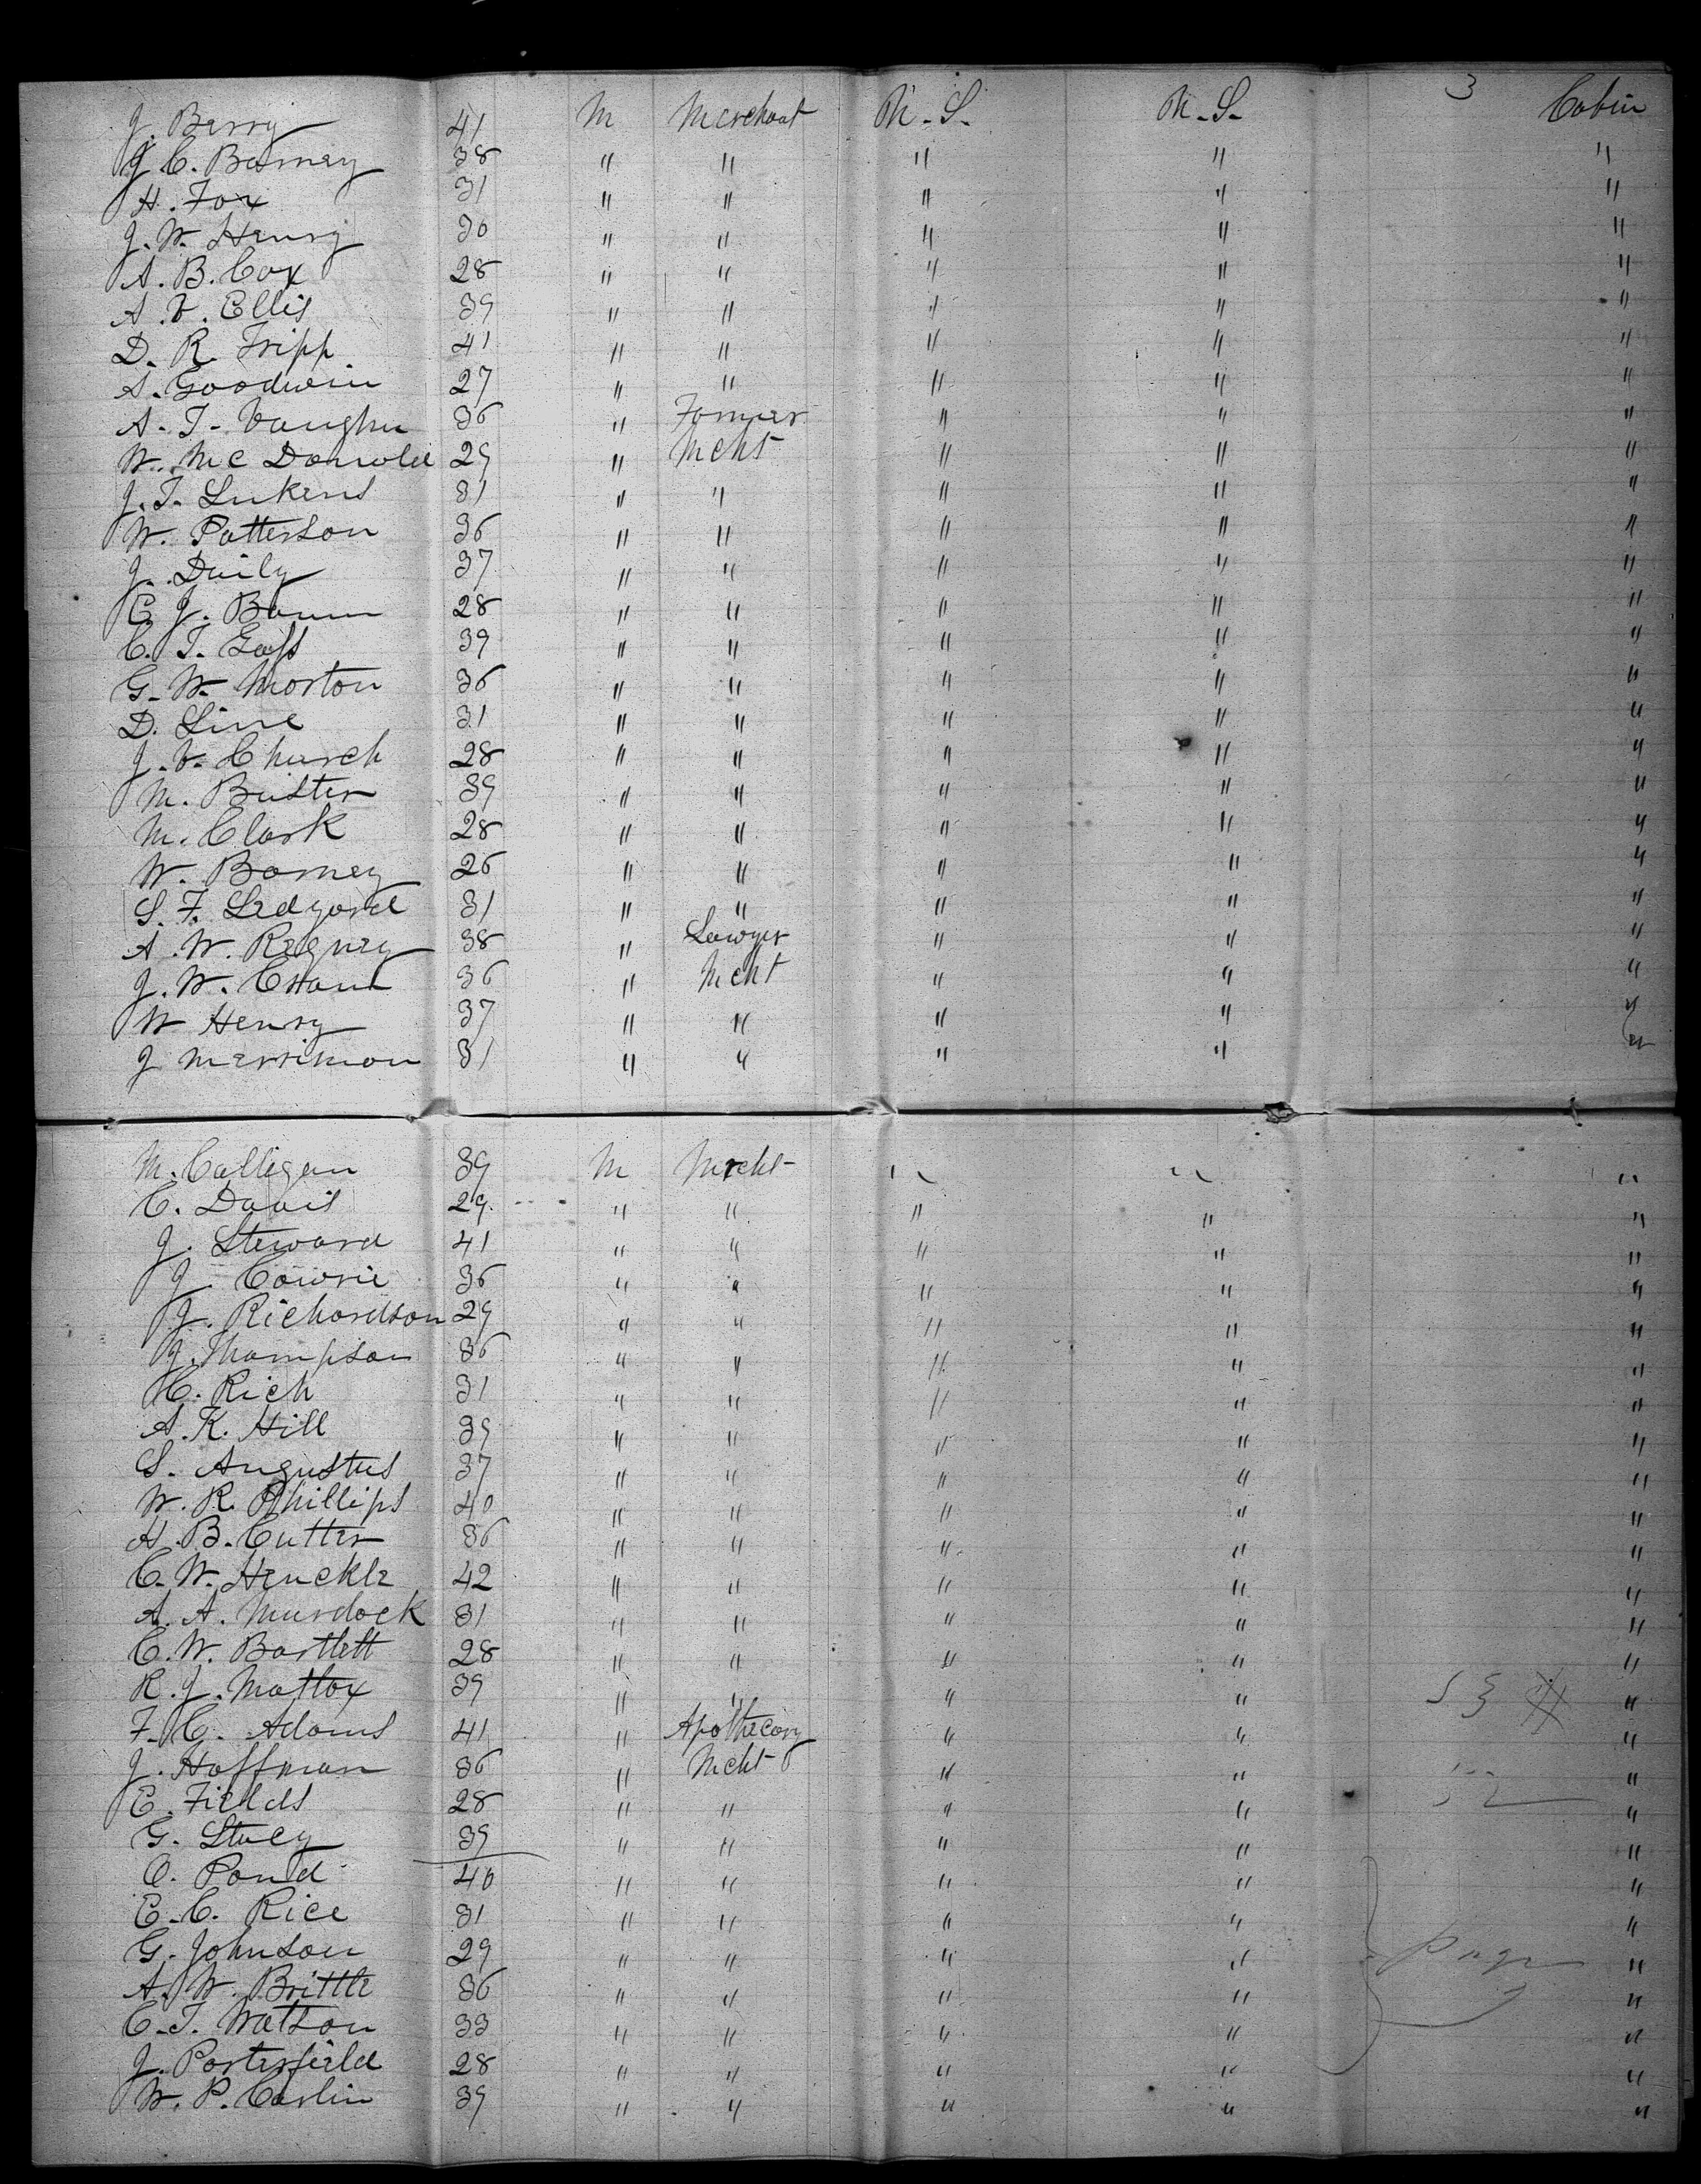 3
J. Berry 41 M Merchant U.S. U.S. Cabin
J. C. Barney 38 " " " " "
H. Fox 31 " " " " "
J. W. Henry 30 " " " " "
A. B. Cox 28 " " " " "
A. V. Ellis 39 " " " " "
D. R. Tripp 41 " " " " "
A. Goodwin 27 " " " " "
A. T. Vaughn 36 " Farmer " " "
W. McDonald 29 " Mcht " " "
J. T. Lukens 31 " " " " "
W. Patterson 36 " " " " "
J. Daily 37 " " " " "
E. J. Baum 28 " " " " "
C. T. Goss 39 " " " " "
G. W. Morton 36 " " " " "
D. Line 31 " " " " "
J. V. Church 28 " " " " "
M. Buster 39 " " " " "
M. Clark 28 " " " " "
W. Barney 26 " " " " "
S. F. Ledyard 31 " " " " "
A. W. 38 " Lawyer " " "
J. W. 36 " Mcht " " "
W Henry 37 " " " " "
J Merriman 31 " " " " "
M. Calligan 39 M Mrcht " " "
C. Davis 29 " " " " "
J. Steward 41 " " " " "
J. Cowrie 36 " " " " "
J. Richardson 29 " " " " "
J. Thompson 36 " " " " "
C. Rich 31 " " " " "
A. K. Hill 39 " " " " "
S. Augustus 37 " " " " "
W. R. Phillips 40 " " " " "
H. B. Cutter 36 " " " " "
C. W. Henckle 42 " " " " "
A. A. Murdock 31 " " " " "
C. W. Bartlett 28 " " " " "
R. J. Mattox 39 " " " " "
F. C. Adams 41 " Apothecary " " "
J. Hoffman 36 " Mcht " " "
E. Fields 28 " " " " "
G. Stacy 39 " " " " "
O. Pond 40 " " " " "
E. C. Rice 31 " " " " "
G. Johnson 29 " " " " "
A. W. Brittle 36 " " " " "
C. T. Watson 33 " " " " "
J. Porterfield 28 " " " " "
W. P. Carlin 39 " " " " "